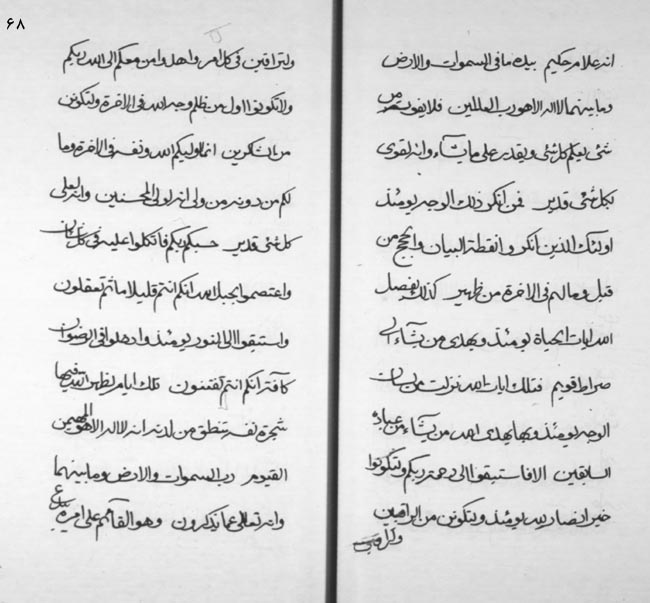 ۶۸
انه علام حكيم بيده ما في السموات والارض
وما بينهما لا اله الا هو رب العالمين فلا يفوت من
شئ يعلم كل شئ ويقدر على ما يشآء وانه لقوى
بكل شئ قدير فمن انكر ذلك الوجه يومئذ
اولئك الذين انكروا نقطة البيان والحجج من
قبل وما لهم في الاخرة من ظهير كذلك يفصل
الله ايات الحياة يومئذ ويهدى من يشآء الى
صراط قويم فتلك ايات الله نزلت من لسان
الوجه يومئذ وبها يهدى الله من يشآء من عباده
السابقين الا فاستبقوا الى رحمة ربكم ولتكونوا
خير انصار لله يومئذ ولتكونن من الراقبين
ولتراقبن في كل امر واهدوا من معكم الى الله ربكم
ولا تكونوا اول من ظلم وجه الله في الاخرة ولتكونن
من الشاكرين انما وليكم الله ونفسه في الاخرة وما
لكم من دونه من ولى انه لولى المحسنين وانه لعلى
كل شئ قدير حسبكم ربكم فاتكلوا عليه في كل
واعتصموا بحبل الله انكم انتم قليلا ما تعقلون
واستبقوا الى النور يومئذ وادخلوا في الرضوان
كآفة انكم انتم تفتنون تلك ايام يظهر الله فيها
شجرة نفسه تنطق من لدنه انه لا اله الا هو المهيمن
القيوم رب السموات والارض وما بينهما
وانه تعالى عما تذكرون وهو القآئم على امره